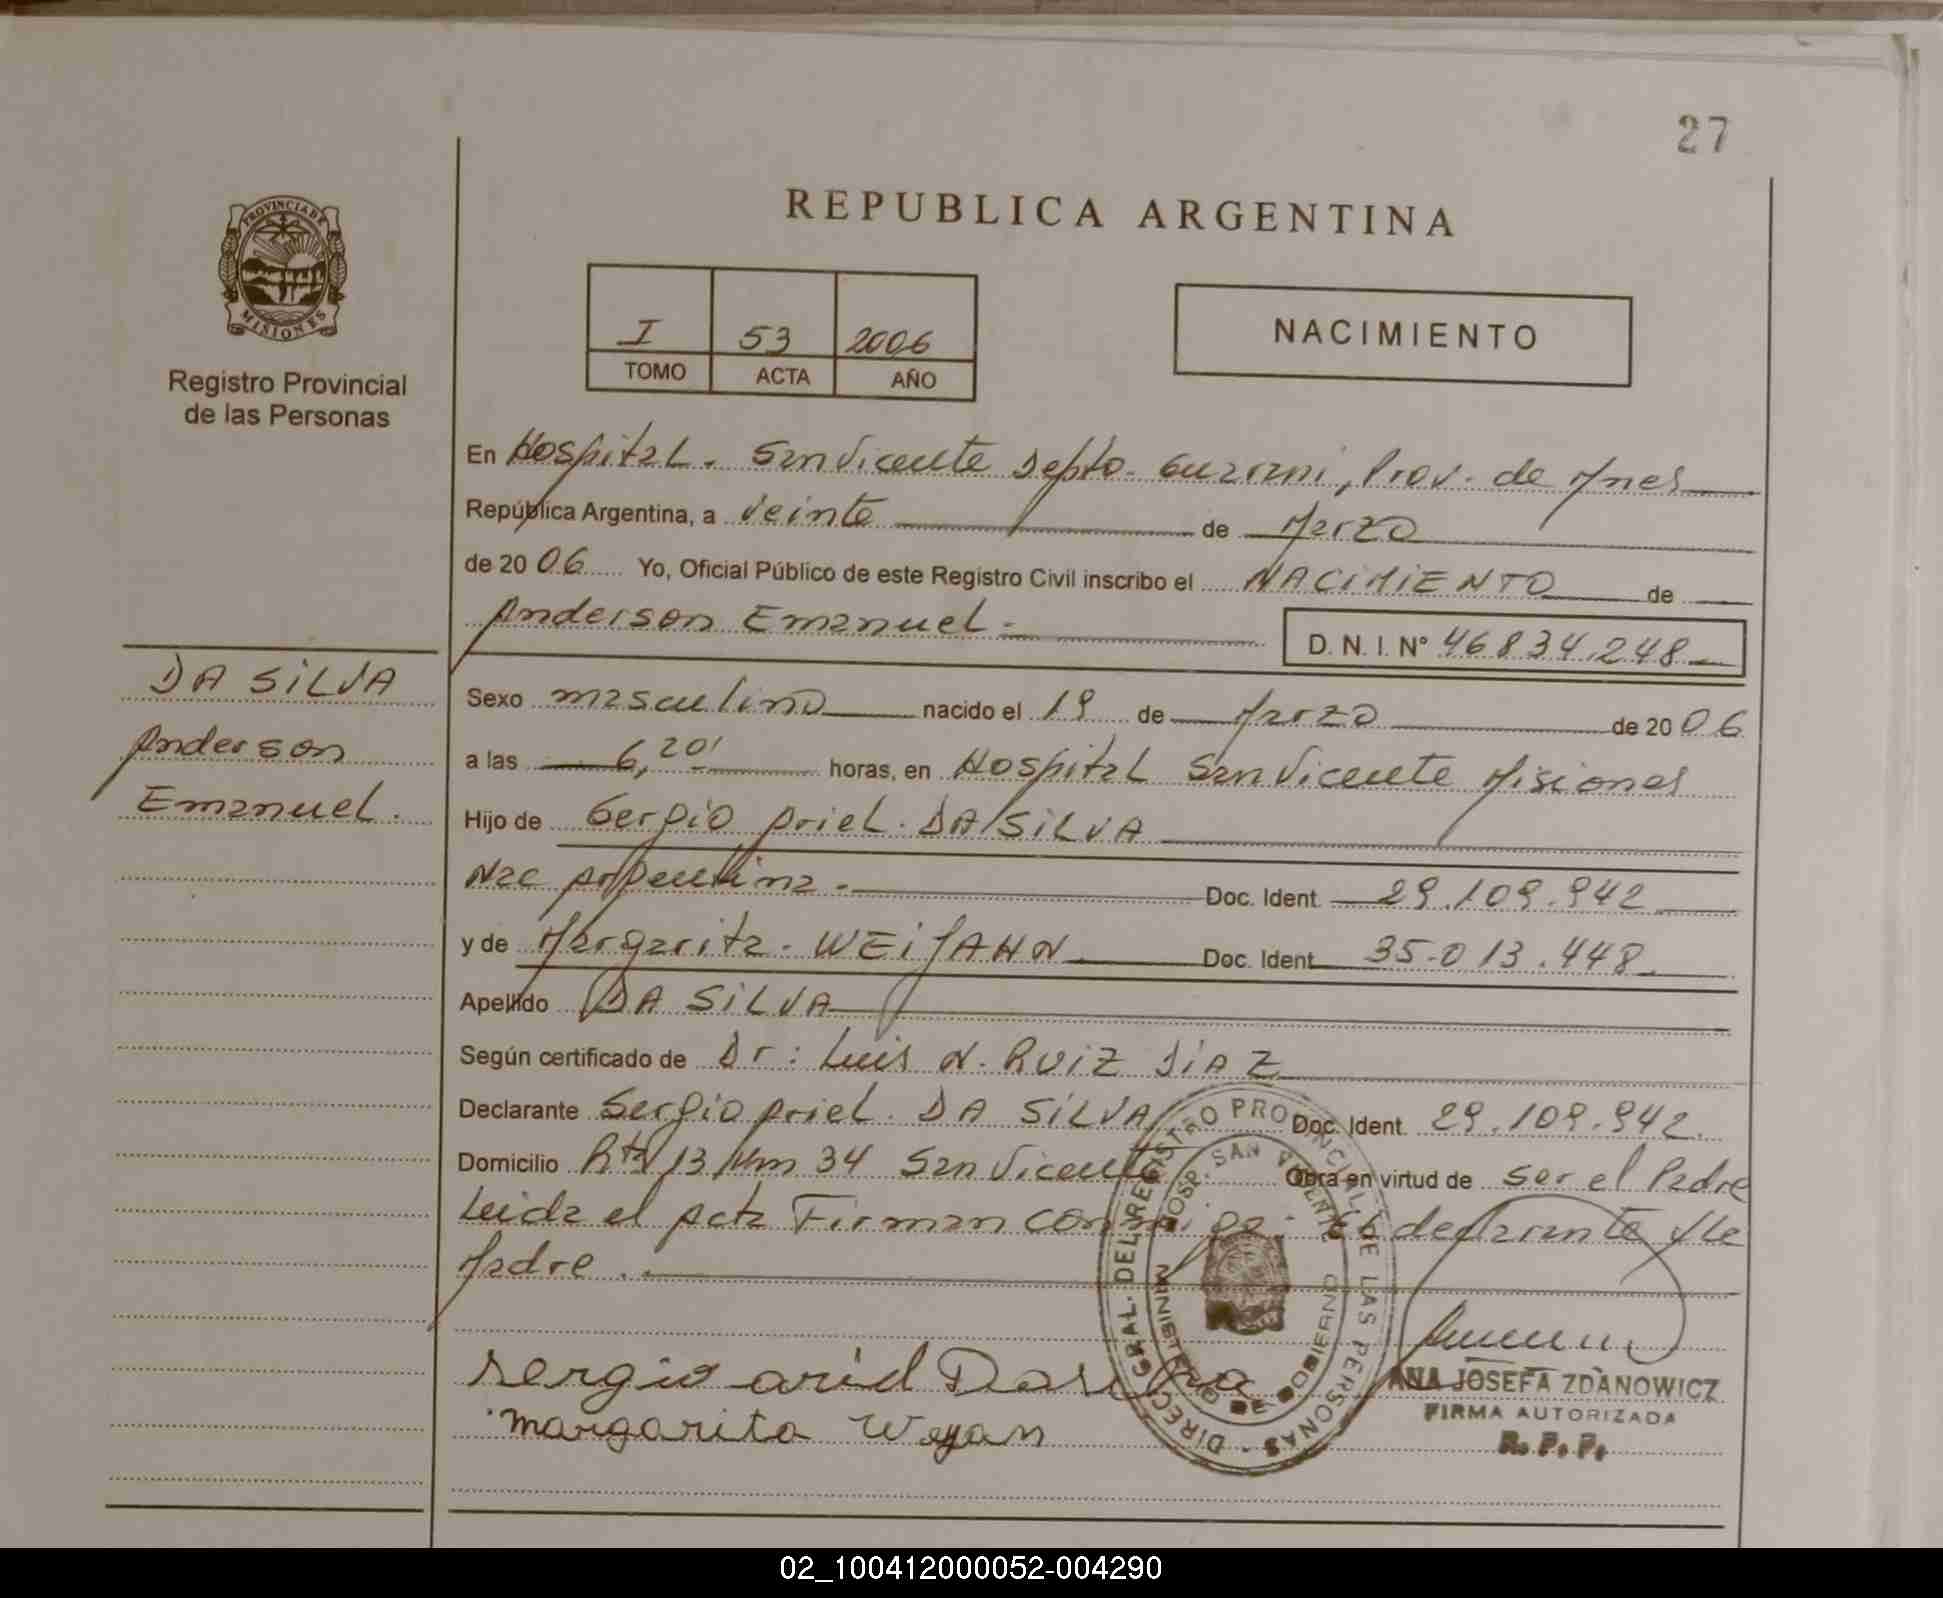 27
REPUBLICA ARGENTINA
PROVINCIA DE
MISIONES
Registro Provincial
de las Personas
I 53 2006
TOMO ACTA AÑO
NACIMIENTO
En Hospital. San Vicente Depto. Guarani, Prov. de Mnes
República Argentina, a veinte de Marzo
de 2006 Yo, Oficial Público de este Registro Civil inscribo el NACIMIENTO de
Anderson Emanuel.-
D. N. I. Nº 46834.248
DA SILVA
Anderson
Emanuel.
Sexo masculino nacido el 19 de Marzo de 2006
a las 6,20' horas, en Hospital San Vicente Misiones
Hijo de Sergio Ariel. DA SILVA
Nac Argentina.- Doc. Ident. 29.109.942
y de Margarita. WEIJAHN Doc. Ident. 35.013.448
Apellido DA SILVA
Según certificado de Dr: Luis N. RUIZ DIAZ
Declarante Sergio Ariel. DA SILVA Doc. Ident. 29.109.942.
Domicilio Rta 13 Km 34 San Vicente Obra en virtud de ser el Padre
Leida el Acta Firman conmigo. El declarante y la
Madre.
DIREC. GRAL. DEL REGISTRO PROVINCIAL DE LAS PERSONAS
HOSP. SAN VICENTE
MINISTERIO DE GOBIERNO
Sergio ariel Dasilva
margarita Weyan
ANA JOSEFA ZDANOWICZ
FIRMA AUTORIZADA
R. P. P.
02_100412000052-004290